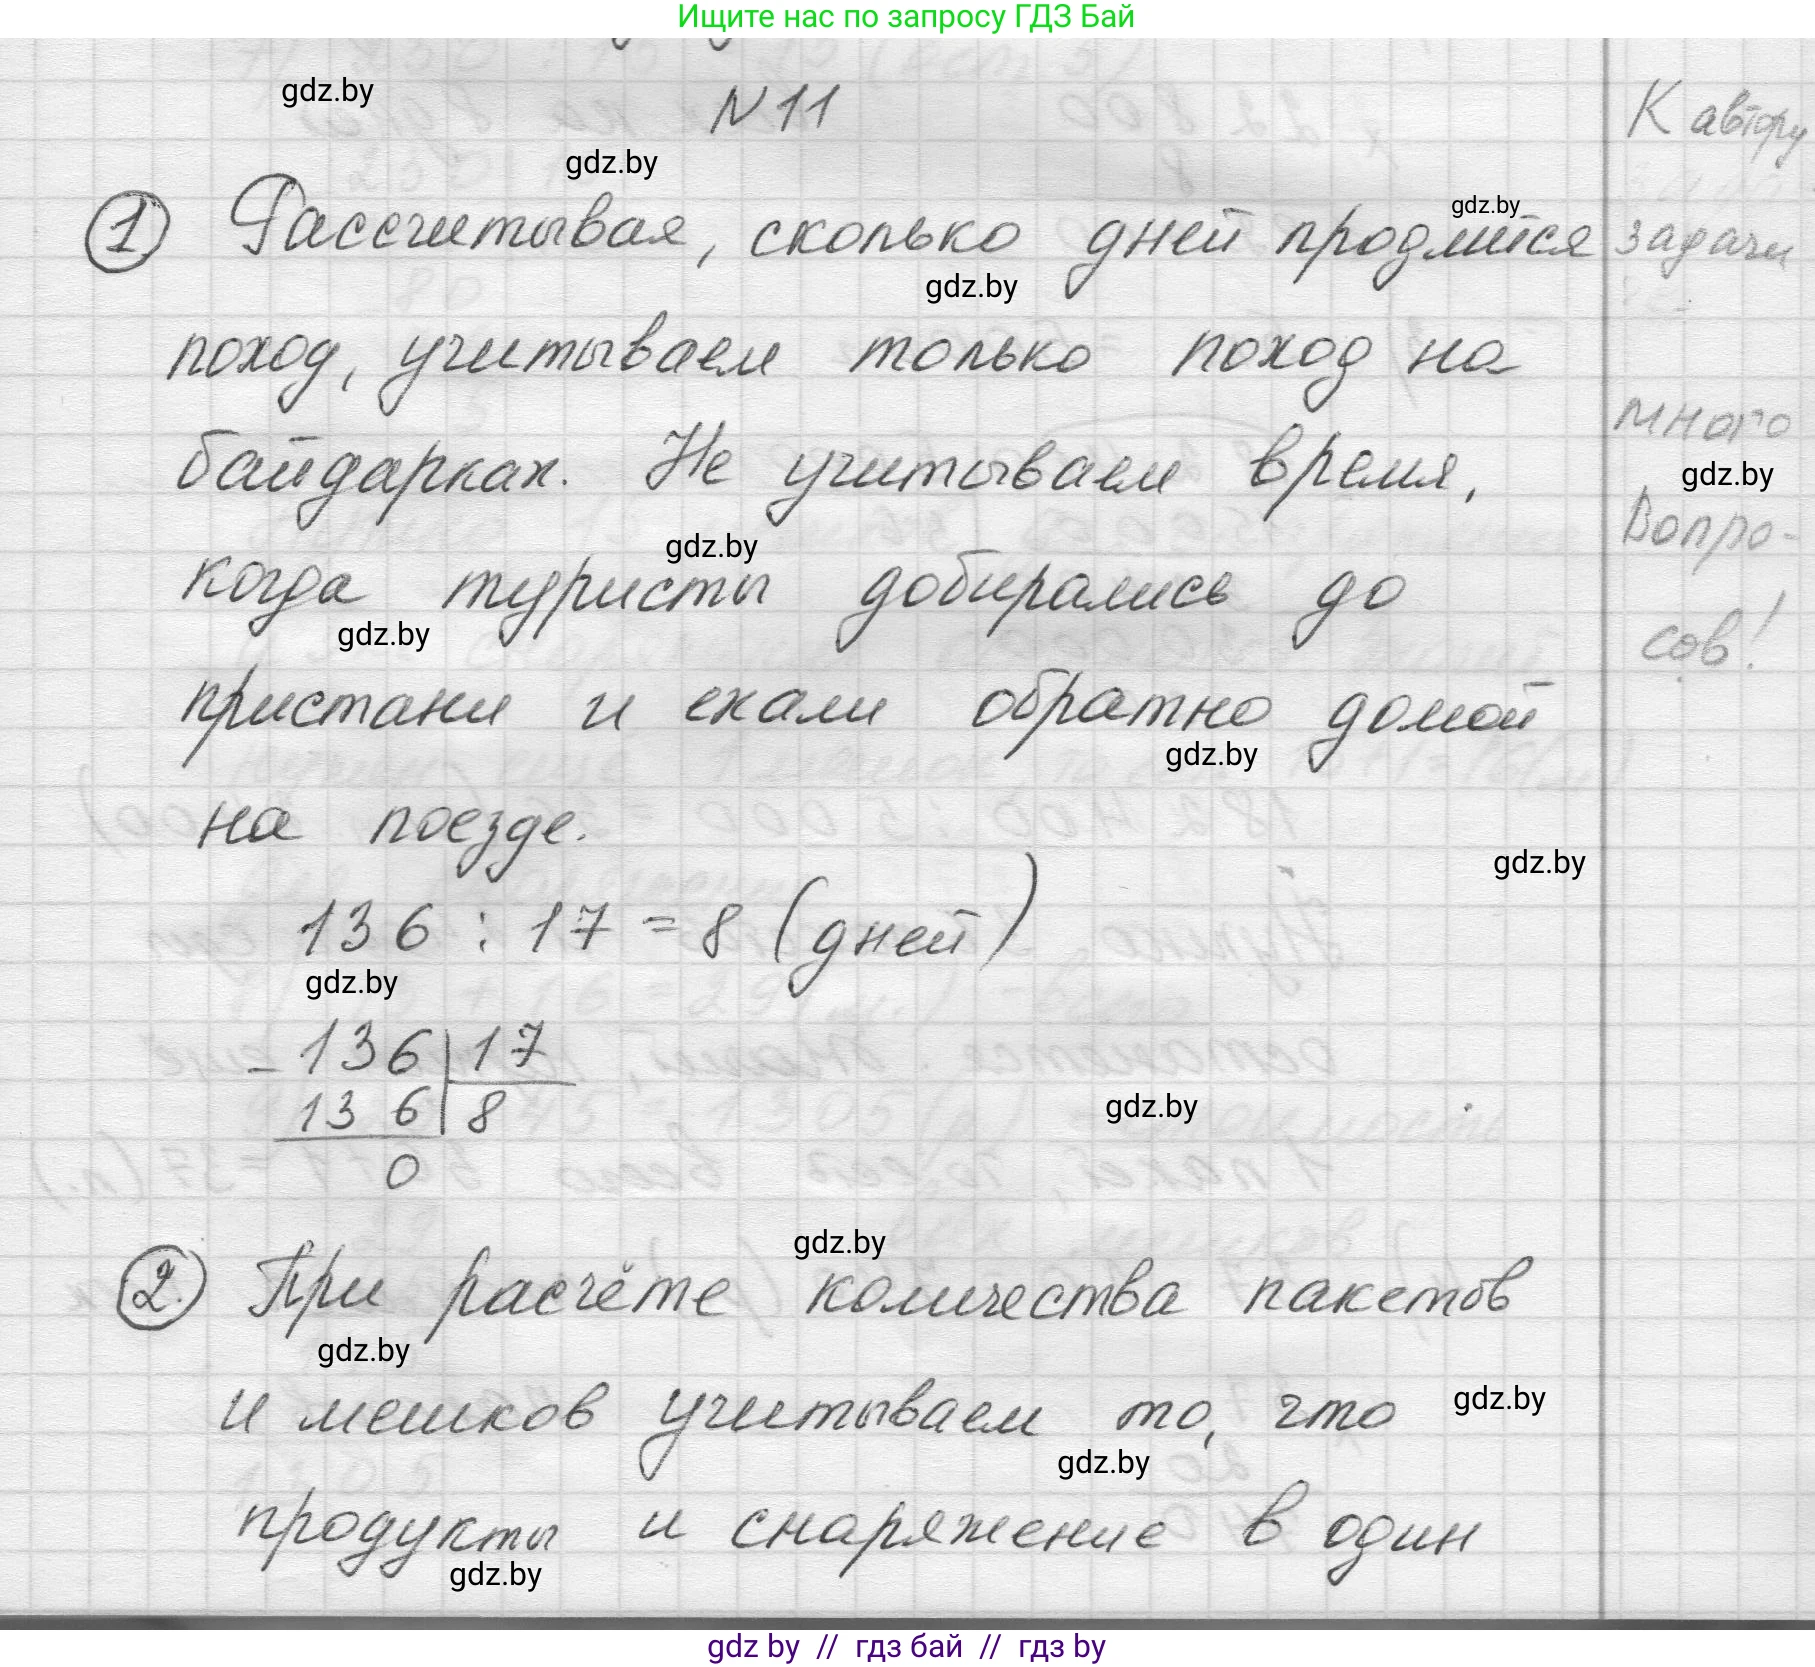 Ищите нас по запросу ГДЗ Бай
gdz.by
N 11
gdz.by
К автору
задачи
много
вопро-
сов!
gdz.by
1 Рассчитывая, сколько дней продлится
gdz.by
gdz.by
поход, учитываем только поход на
байдарках. Не учитываем время,
gdz.by
когда туристы добирались до
gdz.by
пристани и ехали обратно домой
gdz.by
на поезде.
gdz.by
136 : 17 = 8 (дней)
gdz.by
- 136 17
136 8
gdz.by
0
gdz.by
2. При расчёте количества пакетов
gdz.by
и мешков учитываем то, что
gdz.by
gdz.by
продукты и снаряжение в один
gdz.by
gdz by // гдз бай // гдз by